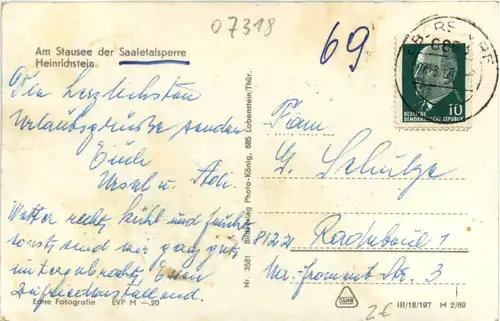 07318
69
Am Stausee der Saaletalsperre
Heinrichstein
Die herzlichsten
Urlaubsgrüße senden
Euch
Ursel u. Adi.
Wetter recht kühl und feucht
sonst sind wir ganz gut
untergebracht, Essen
zufriedenstellend.
Echte Fotografie EVP M –.20
Nr. 3581 Bildverlag Photo-König, 685 Lobenstein/Thür.
10
DEUTSCHE
DEMOKRATISCHE REPUBLIK
Fam.
G. Schulze
8122 Radebeul 1
Str. 3
III/18/197 M 2/69
2€